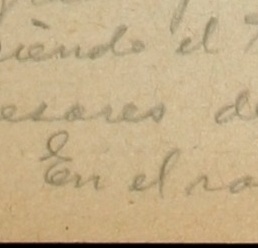 iendo el
esores de
En el ra